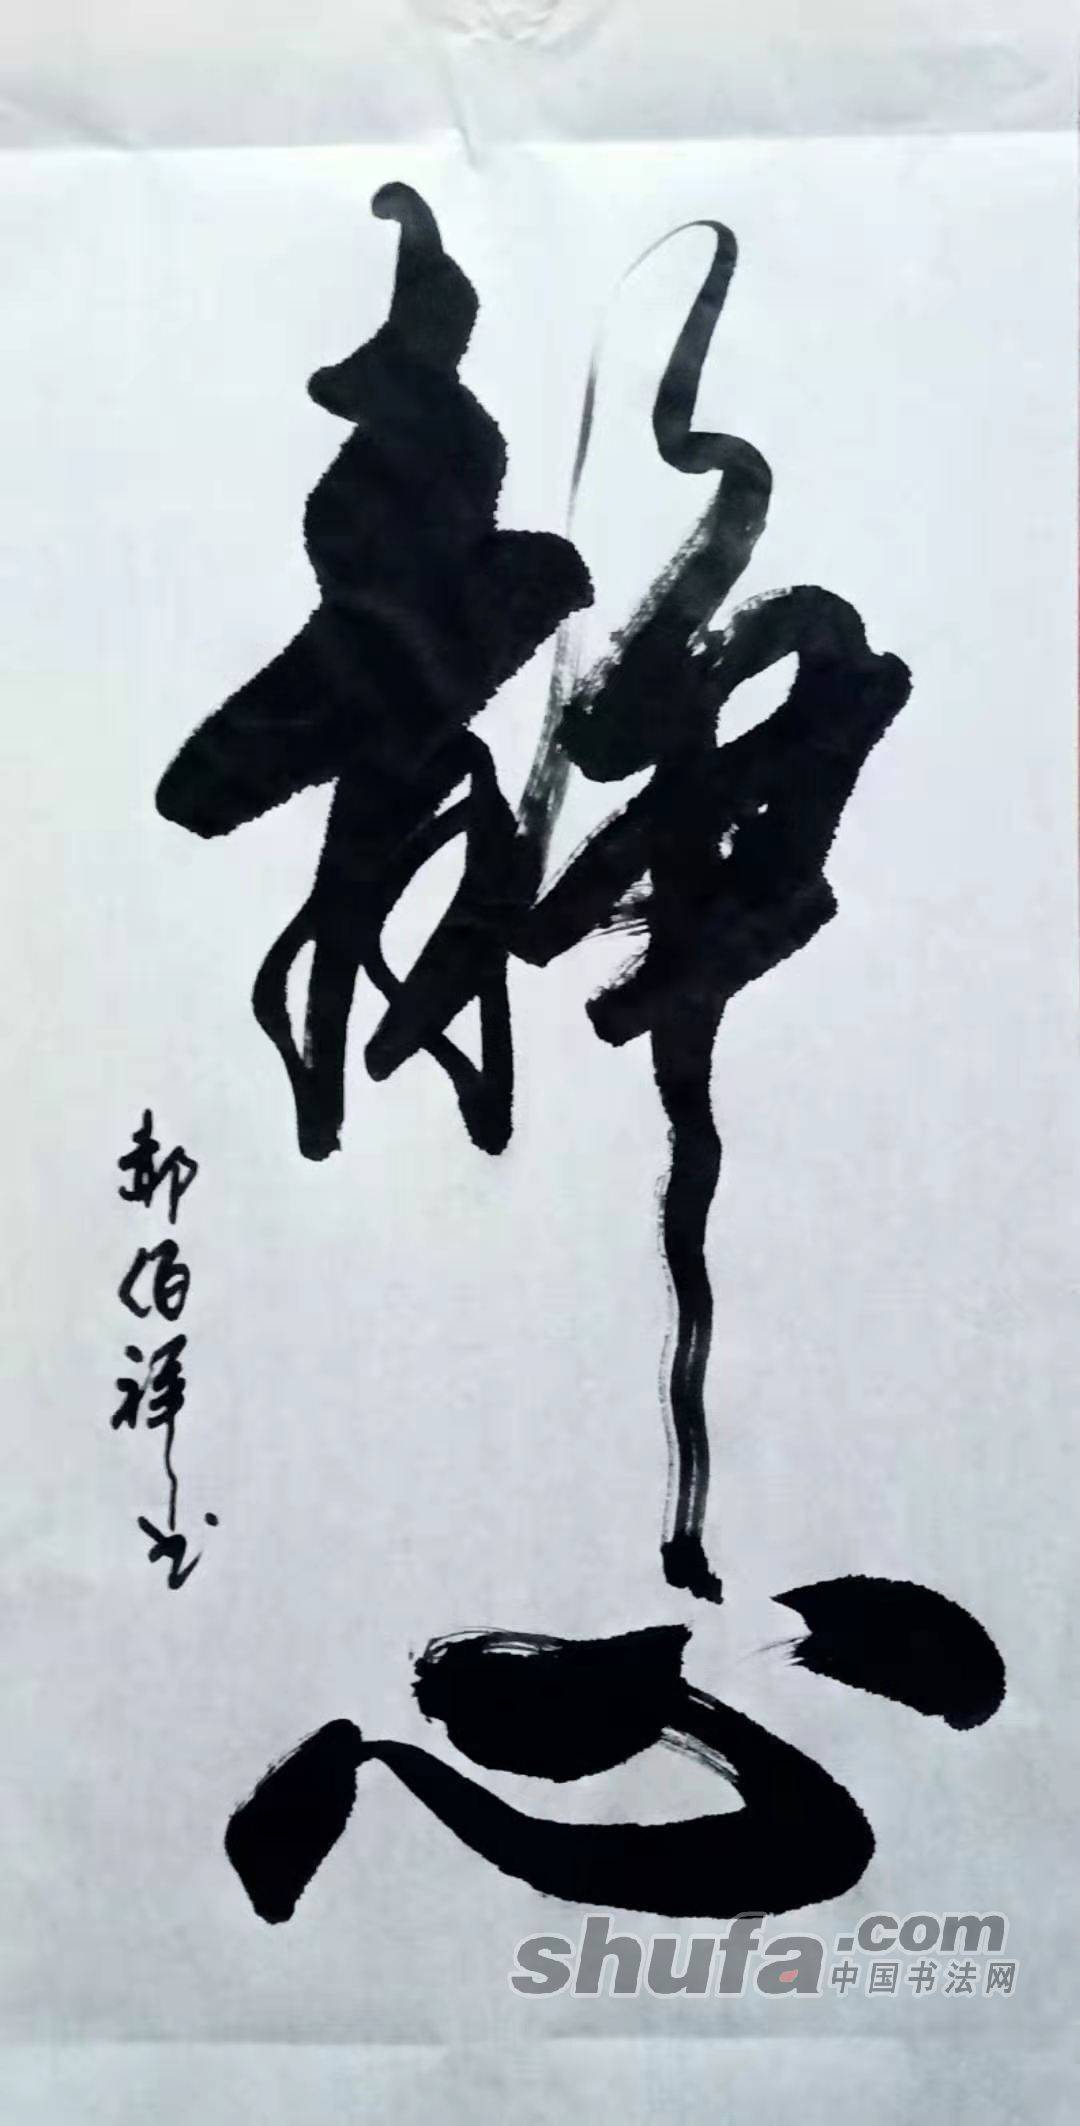 静心
郝佰祥书
shufa.com
中国书法网